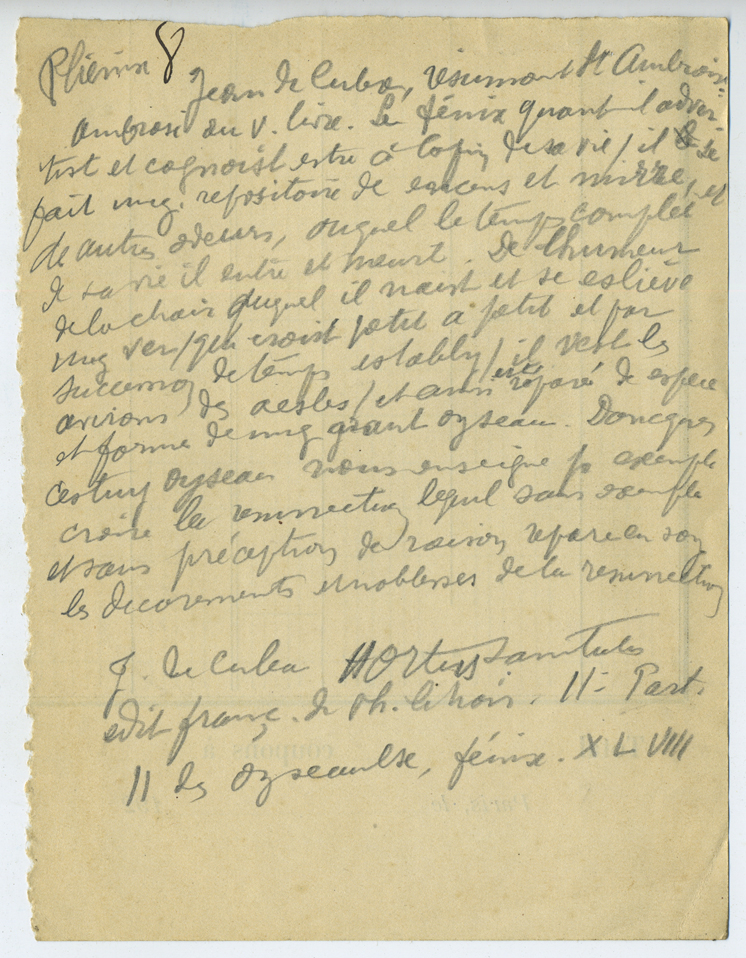 Phénix 8
Jean de Cuba, résumant St Ambroise:
Ambrosi au V. livre. Le fénix quant il adver
tist et cognoist estre à la fin de sa vie / il se
fait ung repositoire de encens et mirre, et
de autres odeurs, ouquel le temps complet
de sa vie il entre et meurt. De lhumeur
de la chair duquel il naist et se eslieve
ung ver / qui croist petit a petit et par
succession de temps estably / il vest les
avirons des aesles / et ainsi est réparé de espece
et forme de ung grant oyseau. Doncques
cestuy oyseau nous enseigne p exemple
croire la resurrection lequel sans exemple
et sans préception de raison repare en soy
les decorements et noblesses de la resurrection
J. de Cuba Hortus Sanitatis
edit franç. de Ph. le Noir. II- Part.
II des oyseaulx, fénix. XLVIIII